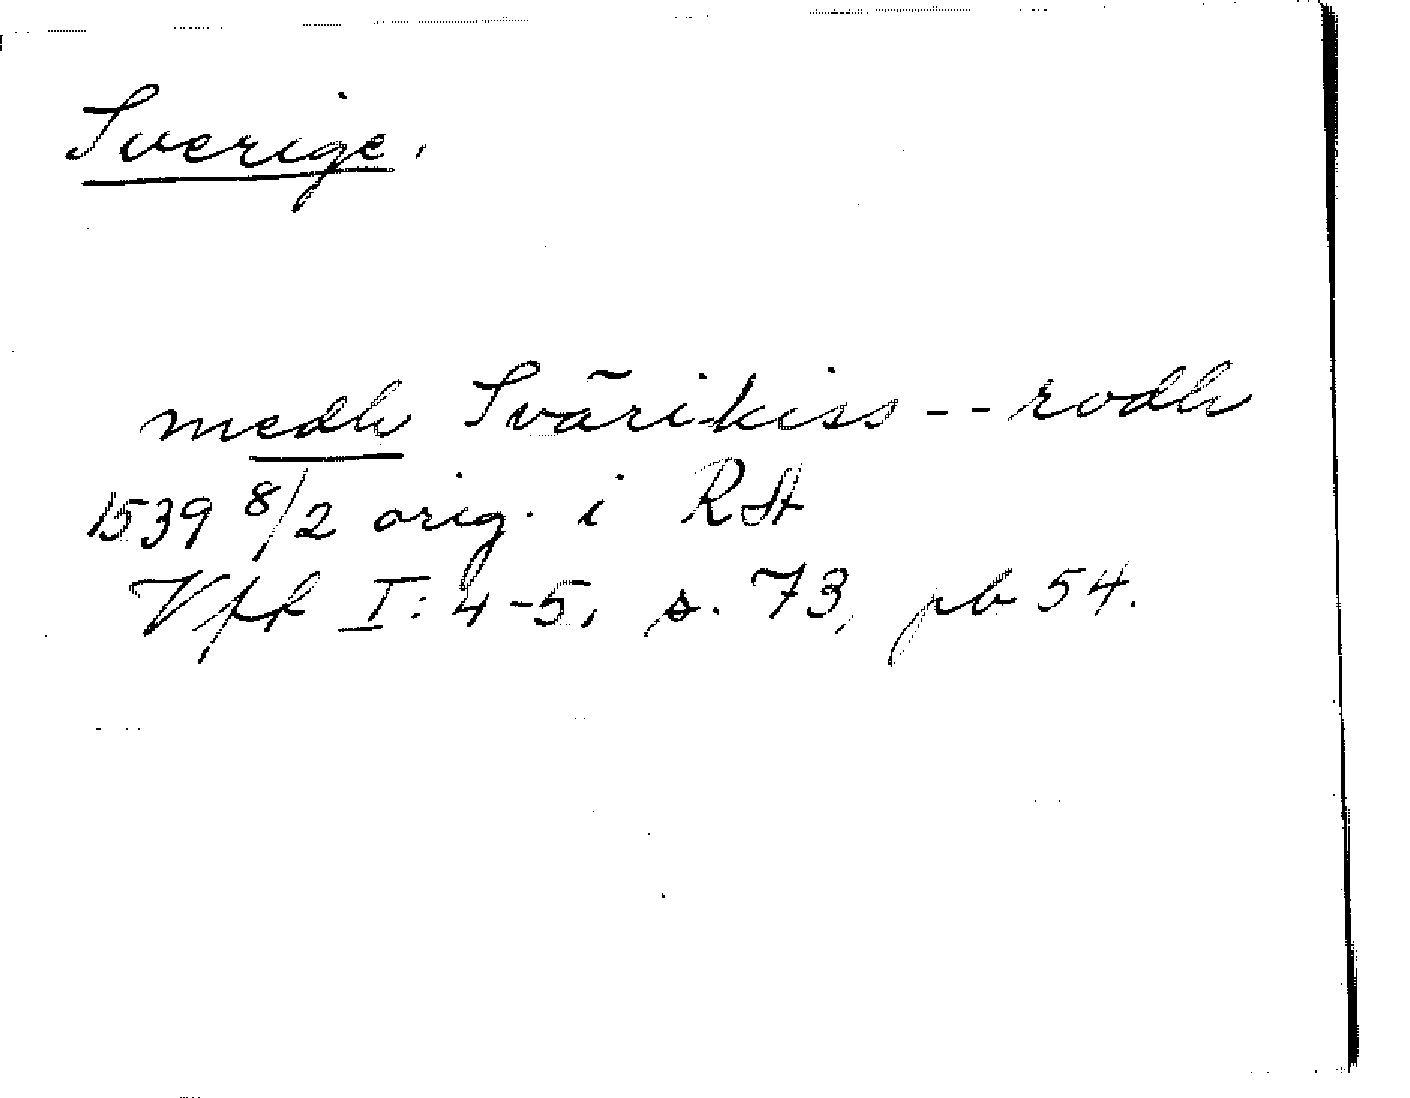 Sverige.
medh Svärikiss -- rodh
1539 8/2 orig. i RA
Vfk I: 4-5, s. 73, pb 54.